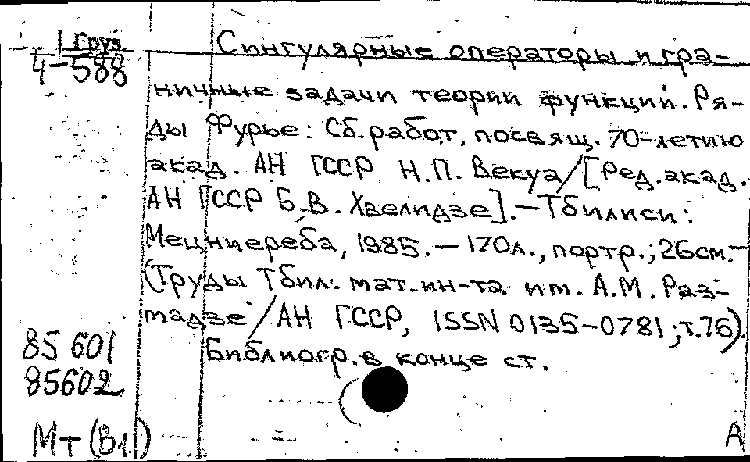 1 Груз
4-588
Сингулярные операторы и гра-
ничные задачи теории функций. Ря-
ды Фурье: Сб. работ, посвящ. 70-летию
акад. АН ГССР Н.П. Векуа/[Ред. акад.
АН ГССР Б.В. Хведидзе].—Тбилиси:
Мецниереба, 1985.—170л., портр.; 26см.—
(Труды Тбил. мат. ин-та им. А.М. Раз-
мадзе/АН ГССР, ISSN 0135-0781; т.76).
Библиогр. в конце ст.
85 601
85602
Мт (В11)
А